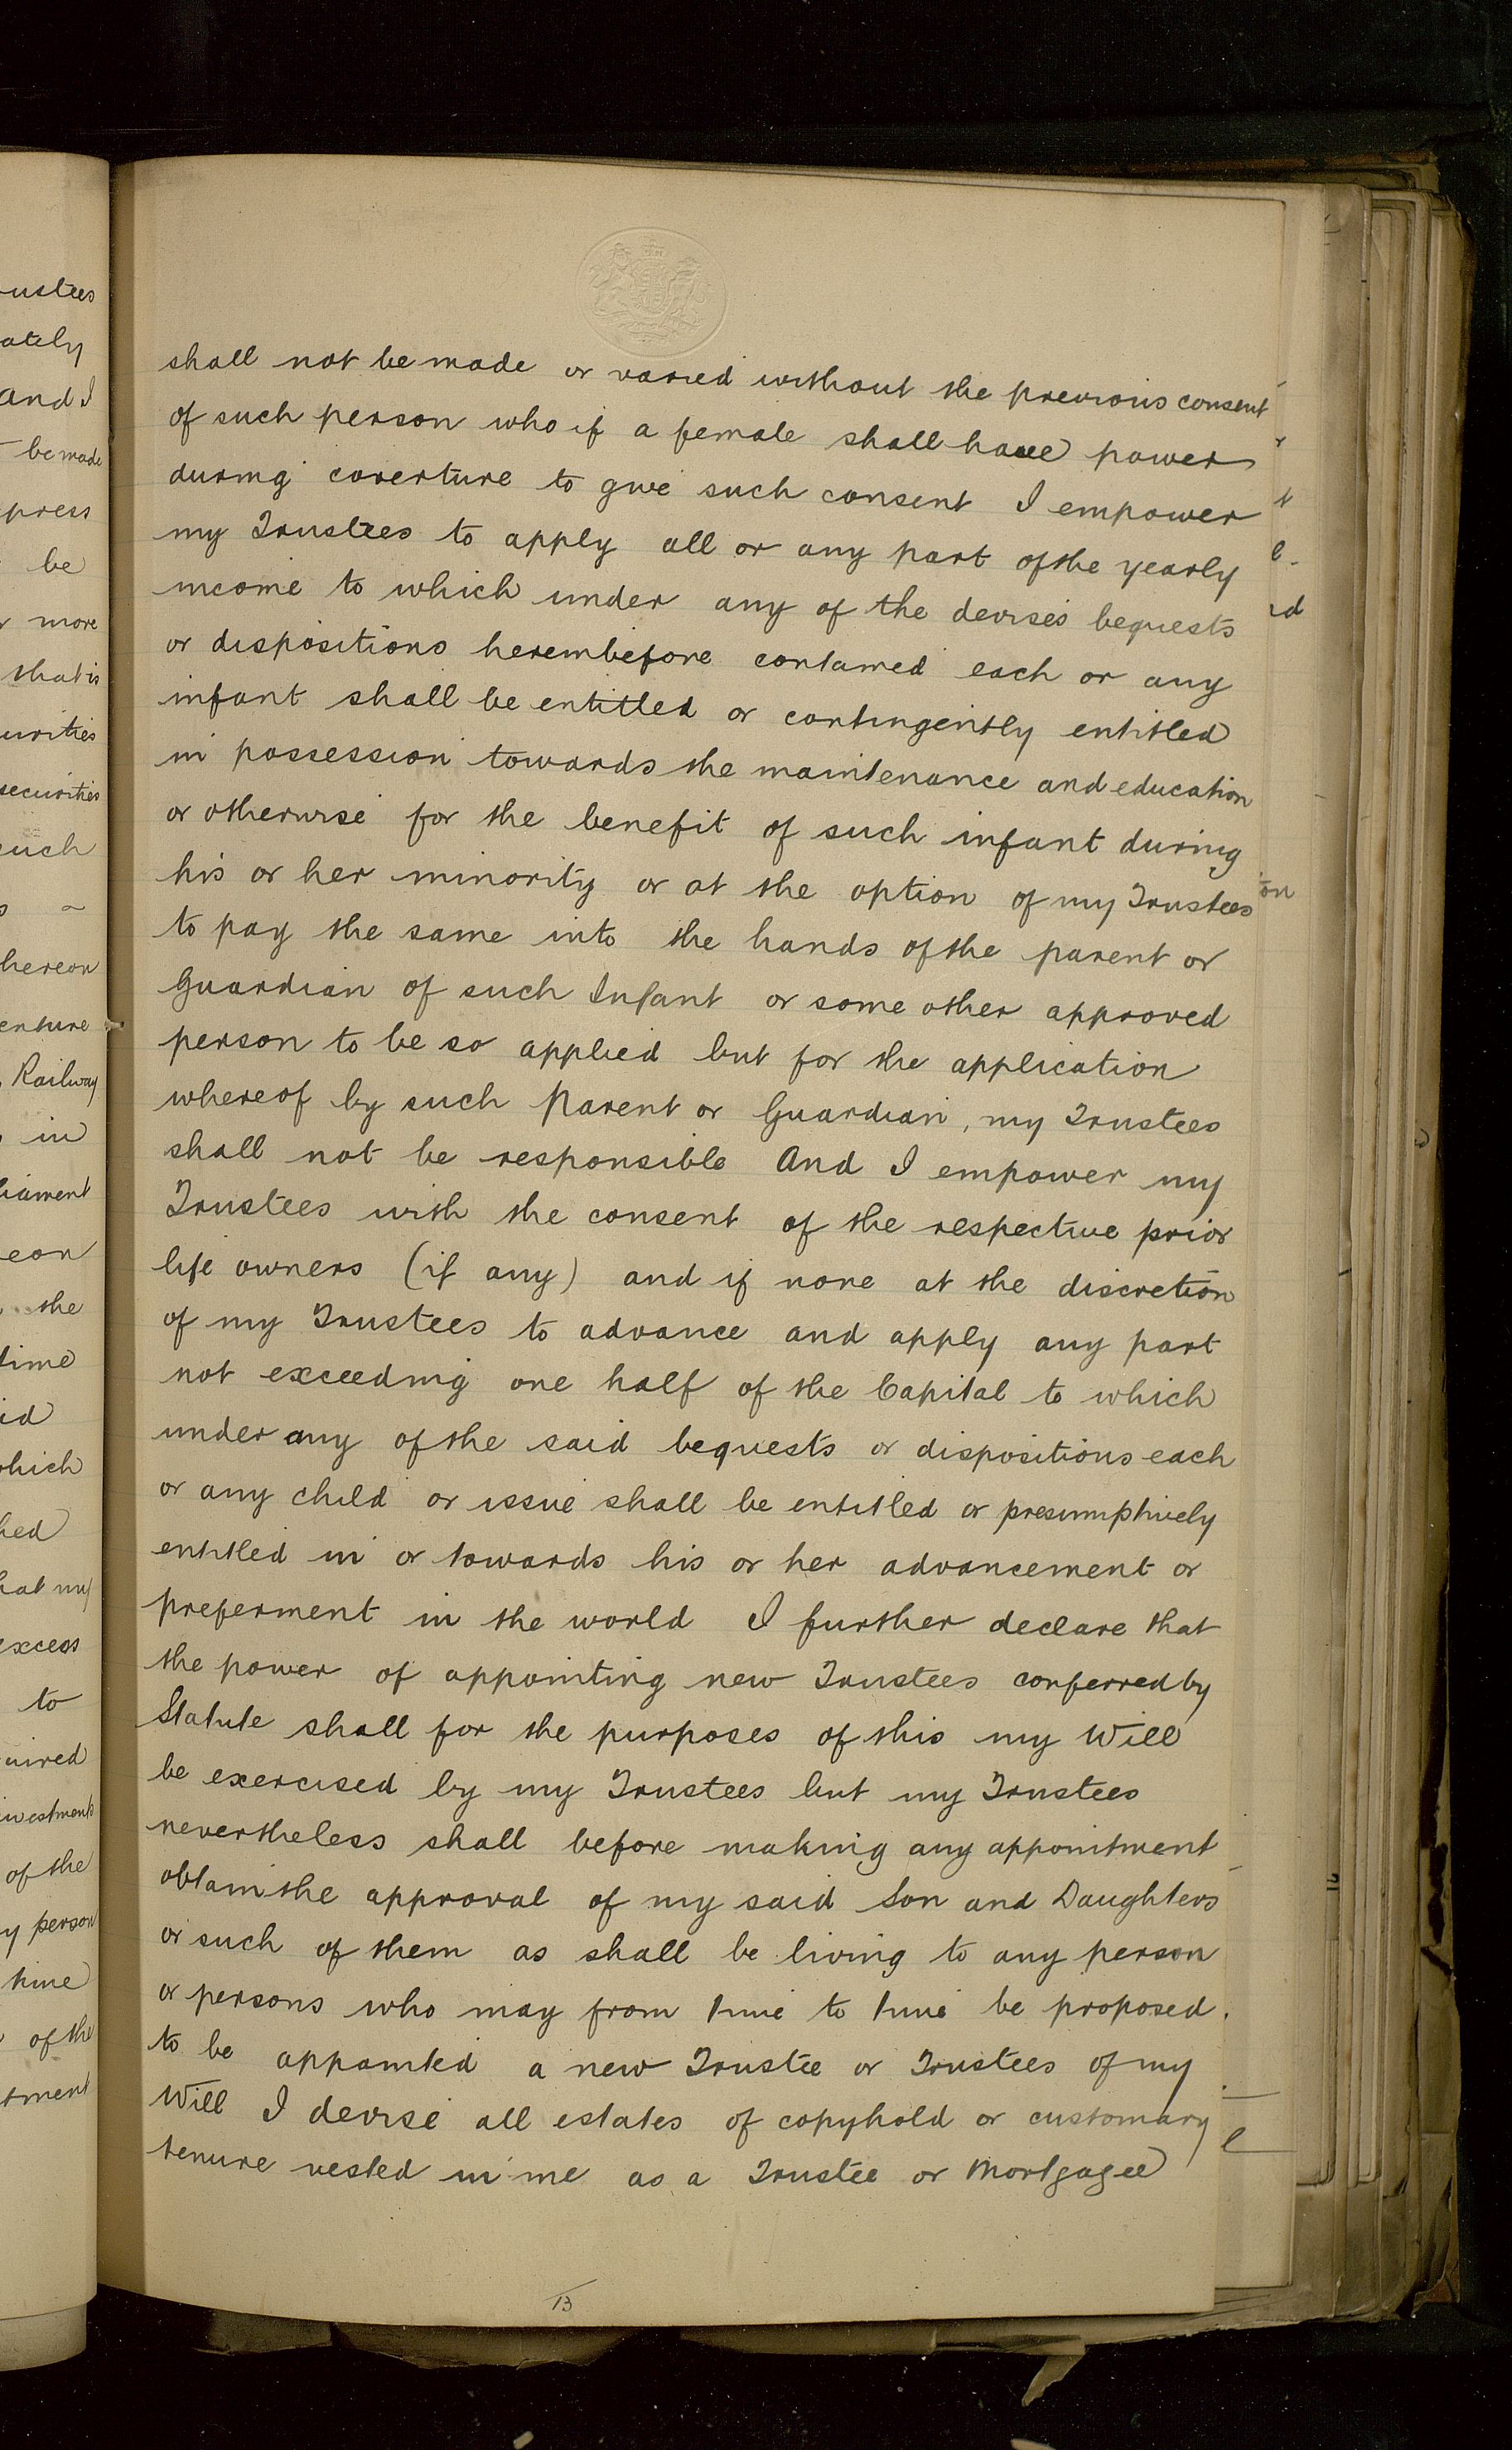 shall not be made or varied without the previous consent
of such person who if a female shall have power
during coverture to give such consent I empower
my Trustees to apply all or any part of the yearly
income to which under any of the devises bequests
or dispositions hereinbefore contained each or any
infant shall be entitled or contingently entitled
in possession towards the maintenance and education
or otherwise for the benefit of such infant during
his or her minority or at the option of my Trustees
to pay the same into the hands of the parent or
Guardian of such Infant or some other approved
person to be so applied but for the application
whereof by such Parent or Guardian, my Trustees
shall not be responsible And I empower my
Trustees with the consent of the respective prior
life owners (if any) and if none at the discretion
of my Trustees to advance and apply any part
not exceeding one half of the Capital to which
under any of the said bequests or dispositions each
or any child or issue shall be entitled or presumptively
entitled in or towards his or her advancement or
preferment in the world I further declare that
the power of appointing new Trustees conferred by
Statute shall for the purposes of this my Will
be exercised by my Trustees but my Trustees
nevertheless shall before making any appointment
obtain the approval of my said Son and Daughters
or such of them as shall be living to any person
or persons who may from time to time be proposed
to be appointed a new Trustee or Trustees of my
Will I devise all estates of copyhold or customary
tenure vested in me as a Trustee or Mortgagee
13
ustees
ately
and I
be made
press
be
more
that is
urities
securities
uch
hereon
enture
Railway
in
liament
eon
the
time
id
which
hed
hat my
excess
to
uired
investments
of the
y person
time
of the
tment